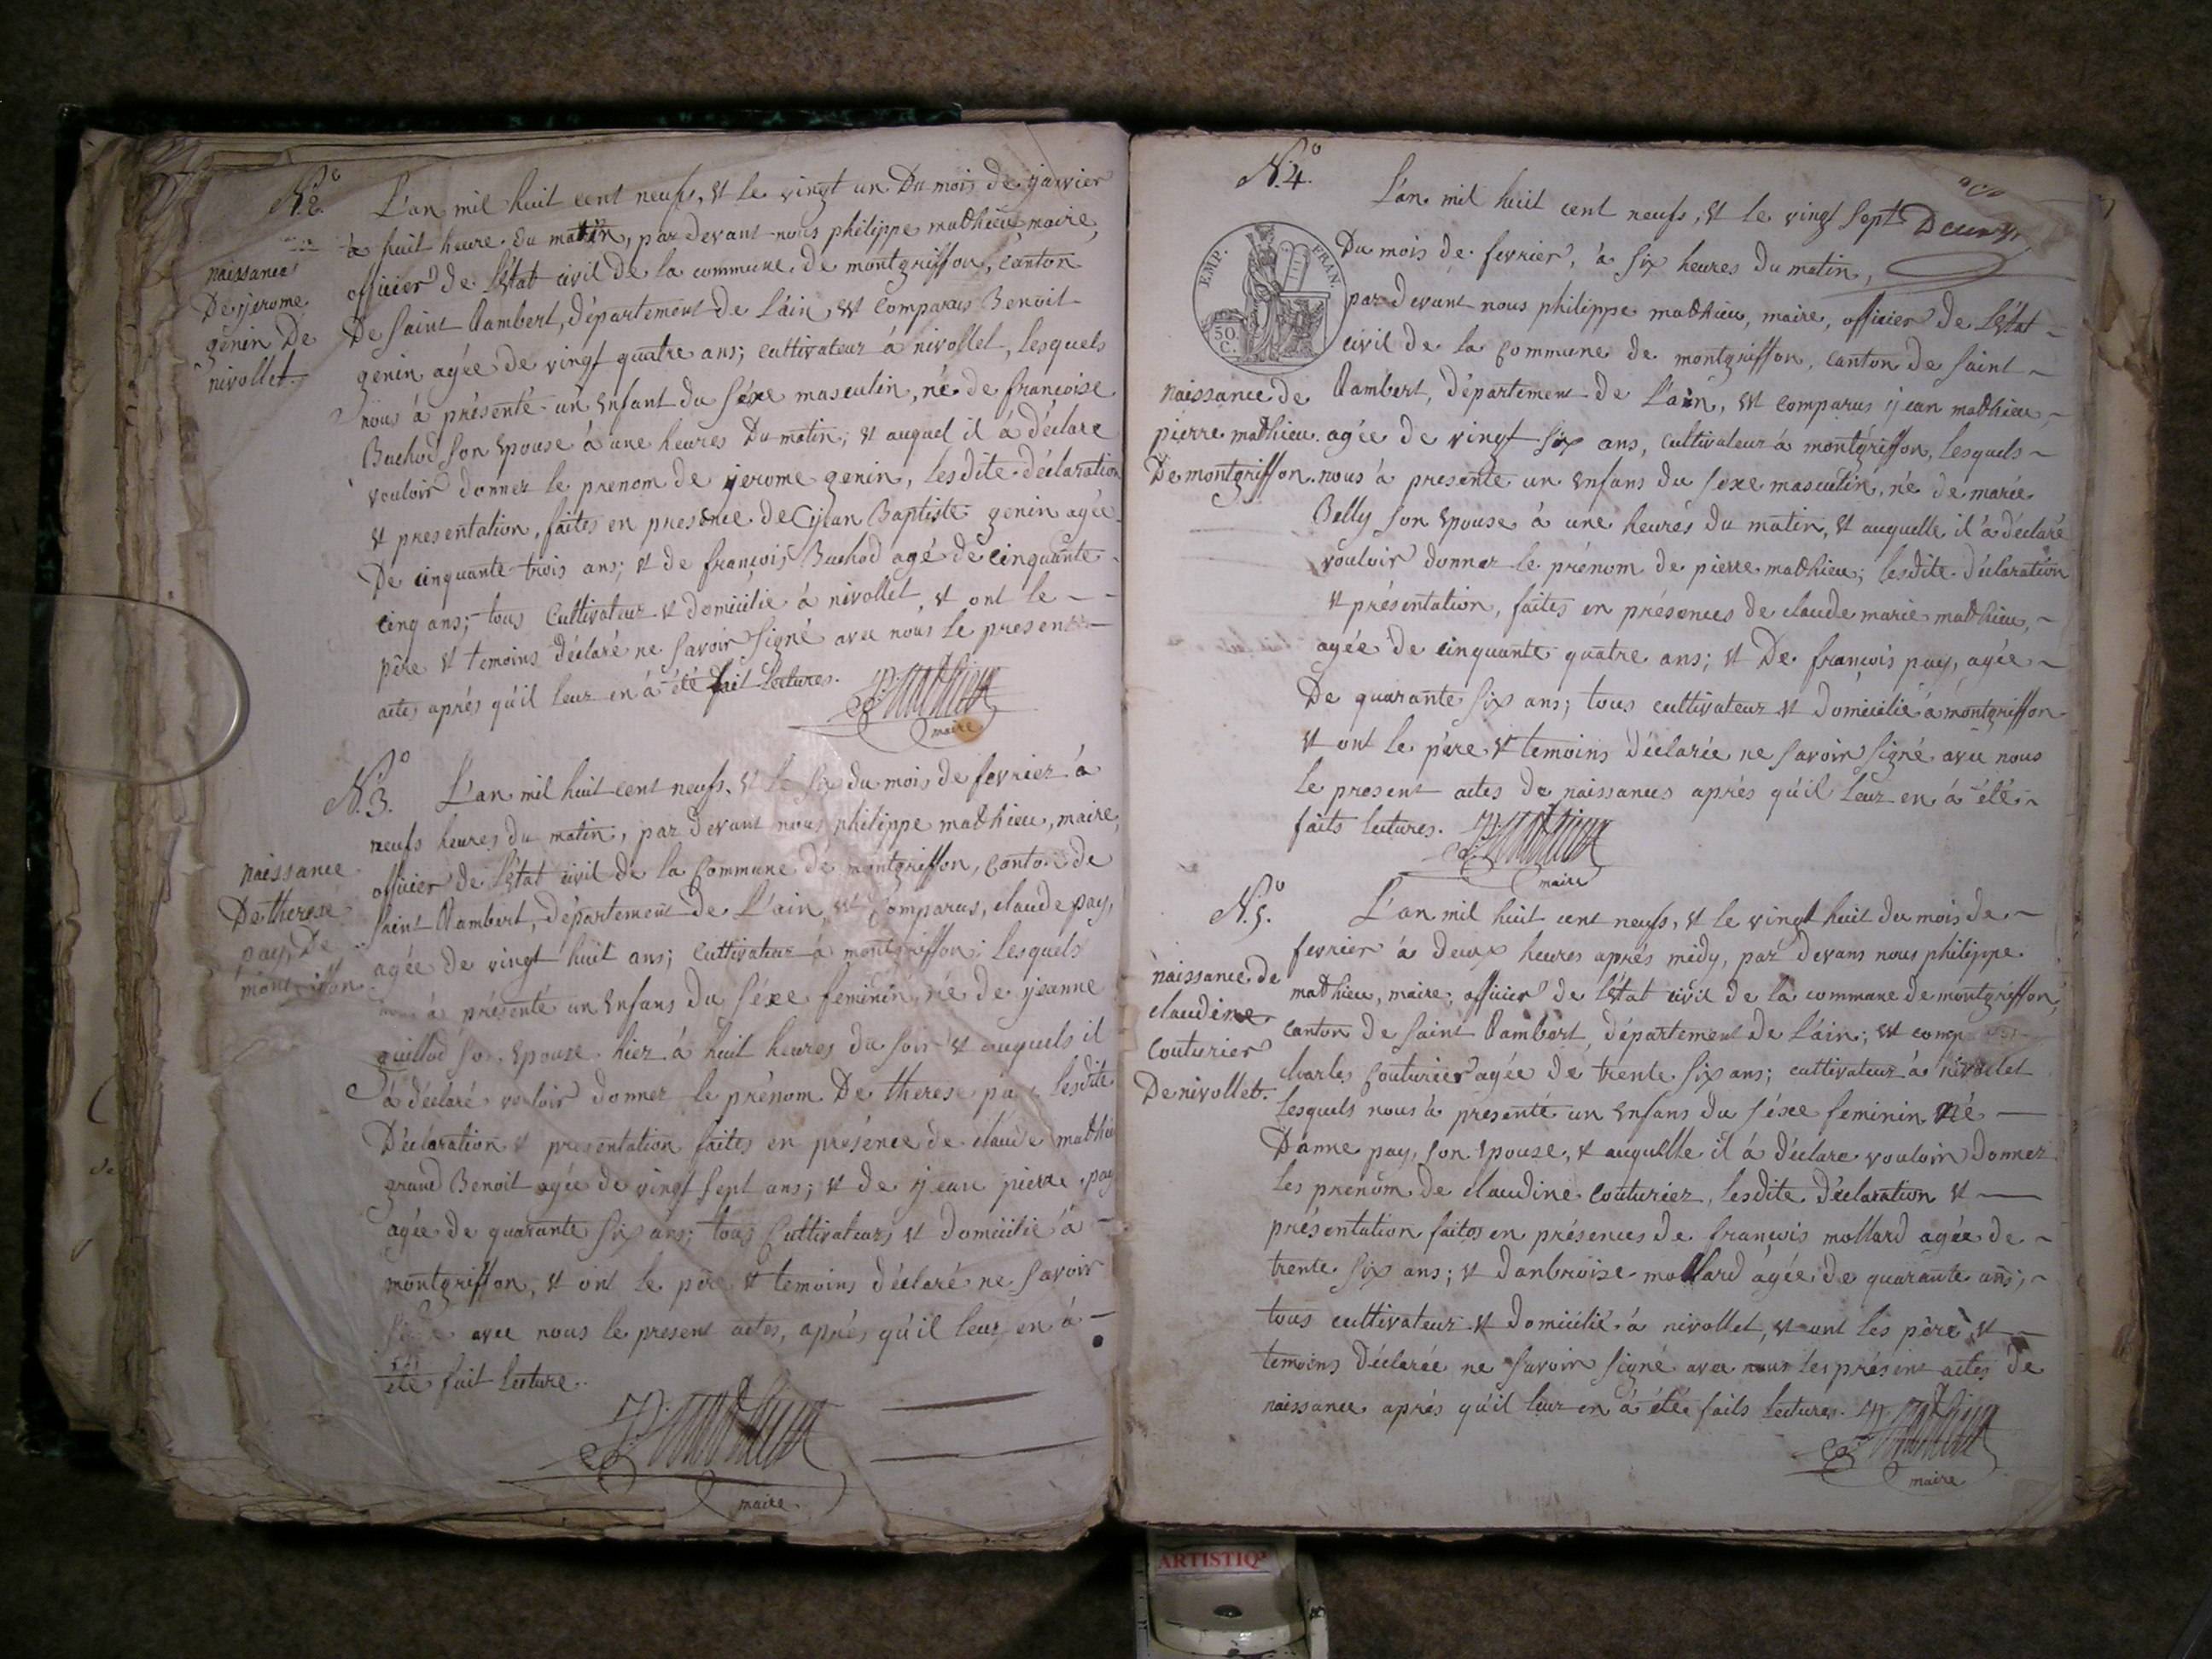 N.° 2.
L'an mil huit cent neufs, et le vingt un Du mois de janvier
à huit heure du matin, par devant nous philippe mathieu, maire,
officier de l'état civil de la commune de montgriffon, canton
De saint Rambert, département de l'ain, est comparus Benoit
genin agée de vingt quatre ans; cultivateur à nivollet, lesquels
nous à présenté un enfant du séxe masculin, né de francoise
Buchod son epouse à une heures Du matin; et auquel il à déclare
vouloir donner le prenom de jerome genin, lesdite déclaration
et presentation, faites en presence de jean Baptiste genin agée
De cinquante trois ans; et de françois Buchod agé de cinquante
cinq ans; tous cultivateur et domicilie à nivollet, et ont le
père et temoins déclaré ne savoir signé avec nous le present
actes aprés qu'il leur en à été fait lectures.
P. mathieu
maire
naissance
De jerome
genin De
nivollet.
N.° 3.
L'an mil huit cent neufs, et le six du mois de fevrier à
neufs heures du matin, par devant nous philippe mathieu, maire,
officier de l'état civil de la commune de montgriffon, canton de
saint Rambert, département de L'ain, est comparus, claude pay,
agée de vingt huit ans; cultivateur à montgriffon; lesquels
nous à présenté un enfans du séxe feminin, né de jeanne
guillod son epouse hier à huit heures du soir et auquels il
à déclaré vouloir donner le prénom De therese pay lesdite
Déclaration et presentation faites en présence de claude mathieu
grand Benoit agée de vingt sept ans; et de jean pierre pay
agée de quarante six ans; tous cultivateurs et domicilié à
montgriffon, et ont le père et temoins déclaré ne savoir
signé avec nous le present actes, aprés qu'il leur en à
été fait lecture.
P. mathieu
maire.
naissance
De therese
pay, De
montgriffon
N.° 4.
L'an mil huit cent neufs, et le vingt sept
Du mois de fevrier, à six heures du matin,
par devant nous philippe mathieu, maire, officier de l'état
civil de la commune de montgriffon, canton de saint
Rambert, département de L'ain, est comparus jean mathieu,
agée de vingt six ans, cultivateur à montgriffon, lesquels
nous à presenté un enfans du sexe masculin, né de marie
Belly son epouse à une heures du matin, et auquelle il à déclaré
vouloir donner le prénom de pierre mathieu; lesdite déclaration
et présentation, faites en présences de claude marie mathieu,
agée de cinquante quatre ans; et De françois pay, agée
De quarante six ans; tous cultivateur et domicilié à montgriffon
et ont le père et temoins déclarée ne savoir signé avec nous
le present actes de naissances aprés qu'il leur en à été
faits lectures.
P. mathieu
maire
EMP. FRAN.
50 C.
naissance de
pierre mathieu.
De montgriffon.
N.° 5.
L'an mil huit cent neufs, et le vingt huit du mois de
fevrier à deux heures aprés midy, par devans nous philippe
mathieu, maire, officier de l'état civil de la commune de montgriffon,
canton de saint Rambert, département de L'ain; est comp
charles couturier agée de trente six ans; cultivateur à nivollet
lesquels nous à presenté un enfans du séxe feminin né
D'anne pay, son epouse, et auquelle il à déclare vouloir Donner
les prenom de claudine couturier, lesdite déclaration et
présentation faites en présences de françois mollard agée de
trente six ans; et danbroise mollard agée de quarante ans;
tous cultivateur et domicilié à nivollet, et ont les père et
temoins déclarée ne savoir signé avec nous les présent actes de
naissance aprés qu'il leur en à été faits lectures.
P. mathieu
maire
naissance de
claudine
couturier
De nivollet.
ARTISTIQ